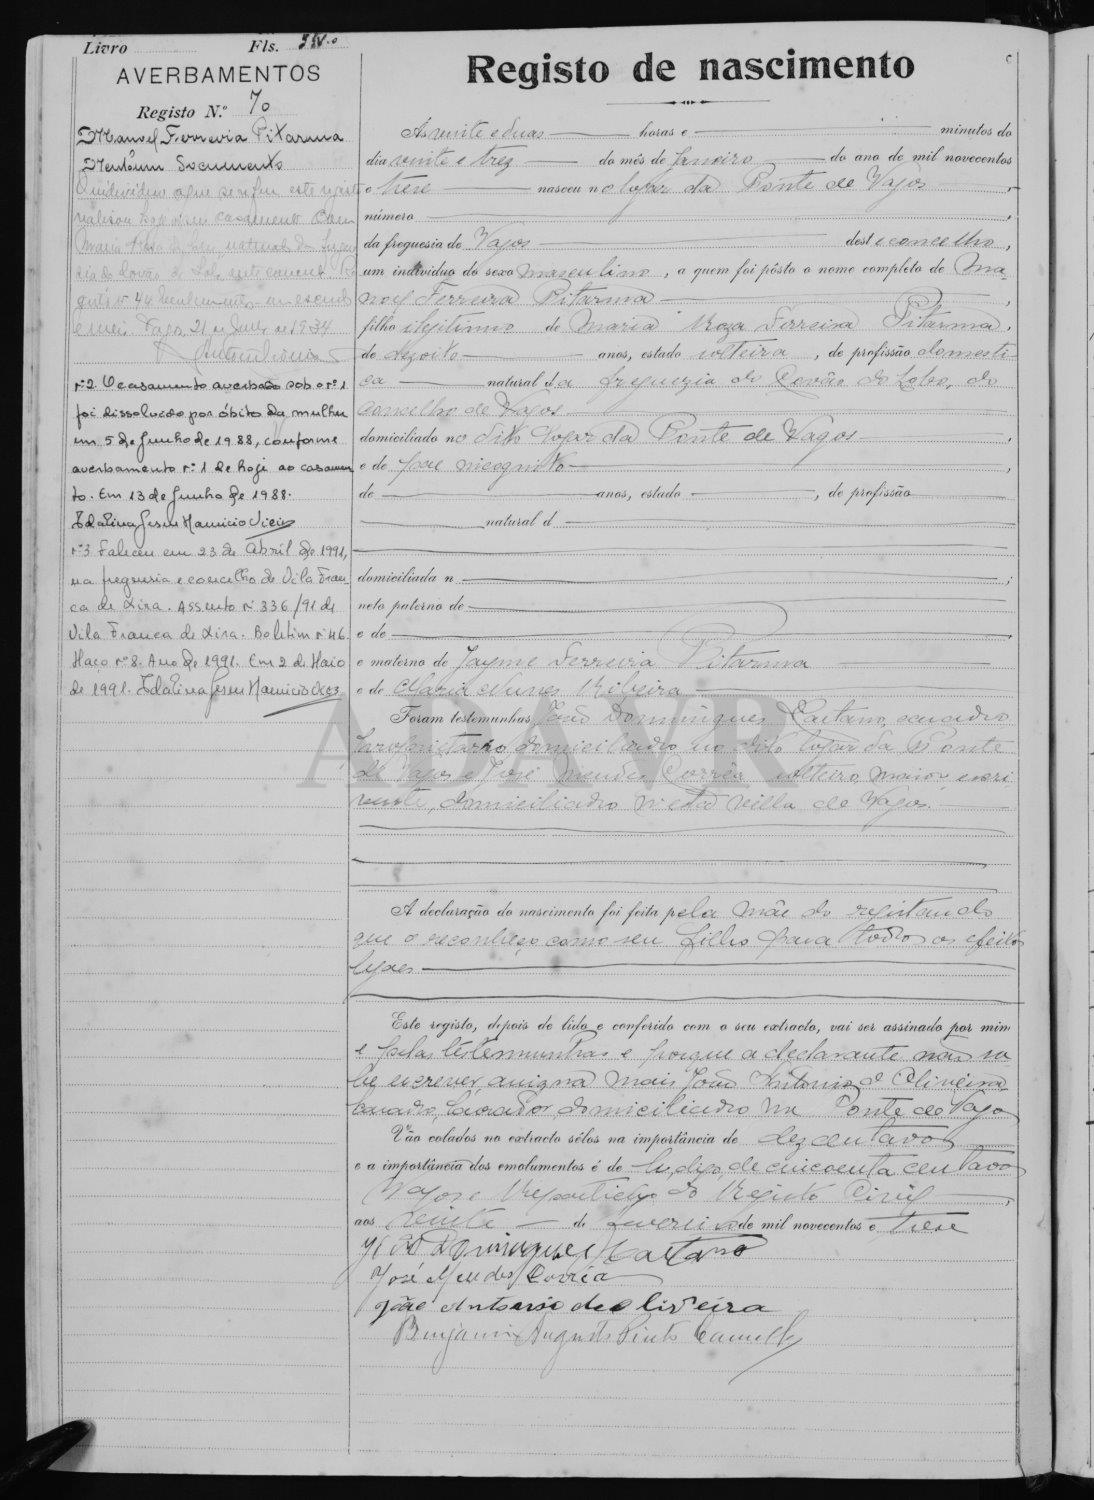 Livro Fls.
AVERBAMENTOS
Registo N.º 70
Manuel Ferreira Pitarma
Nenhum Documento
O individuo a que se refere este registo
realisou hoje o seu casamento com
Maria Rosa de Jesus, natural da fregue-
sia de Covão do Lobo, este concelho. Re-
gisto nº 44
Vagos, 21 de 1934
nº2. O casamento averbado sob o nº 1
foi dissolvido por óbito da mulher
em 5 de Junho de 1988, conforme
averbamento nº 1 de hoje ao casamen-
to. Em 13 de Junho de 1988.
Idalina Jesus Mauricio Vieira
nº3 Faleceu em 23 de Abril de 1991,
na freguesia e concelho de Vila Fran-
ca de Xira. Assento nº 336/91 de
Vila Franca de Xira. Boletim nº 46.
Maço nº 8. Ano de 1991. Em 2 de Maio
de 1991. Idalina Jesus Mauricio
Registo de nascimento
Ás vinte e duas horas e minutos do
dia vinte e trez do mês de Janeiro do ano de mil novecentos
e trese nasceu no lugar da Ponte de Vagos,
número
da freguesia de Vagos deste concelho,
um indivíduo do sexo masculino, a quem foi pôsto o nome completo de Ma-
noel Ferreira Pitarma,
filho ilegitimo de Maria Roza Ferreira Pitarma,
de dezoito anos, estado solteira, de profissão domesti-
ca natural da freguezia do Covão do Lobo, do
Concelho de Vagos
domiciliado no dito lugar da Ponte de Vagos,
e de pae incognito,
de anos, estado, de profissão
natural d
domiciliada n;
neto paterno de
e de
e materno de Jayme Ferreira Pitarma
e de Maria Nunes Ribeira
Foram testemunhas João Domingues Caetano, casado
proprietario, domiciliado no dito lugar da Ponte
de Vagos e José Mendes Corrêa solteiro, maior, escri-
vente, domiciliado n'esta villa de Vagos.
ADAVR
A declaração do nascimento foi feita pela mãe do registando
que o reconheço como seu filho para todos os efeitos
legaes
Este registo, depois de lido e conferido com o seu extracto, vai ser assinado por mim
e pelas testemunhas e porque a declarante não sa-
be escrever, assigna mais João Antonio d'Oliveira,
casado, lavrador, domiciliado na Ponte de Vagos
Vão colados no extracto sêlos na importância de dez centavos
e a importância dos emolumentos é de de cincoenta centavos
Vagos e Repartição do Registo Civil,
aos vinte de Fevereiro de mil novecentos e trese
João Domingues Caetano
José Mendes Corrêa
João Antonio de Oliveira
Benjamin Augusto Pinto Camello